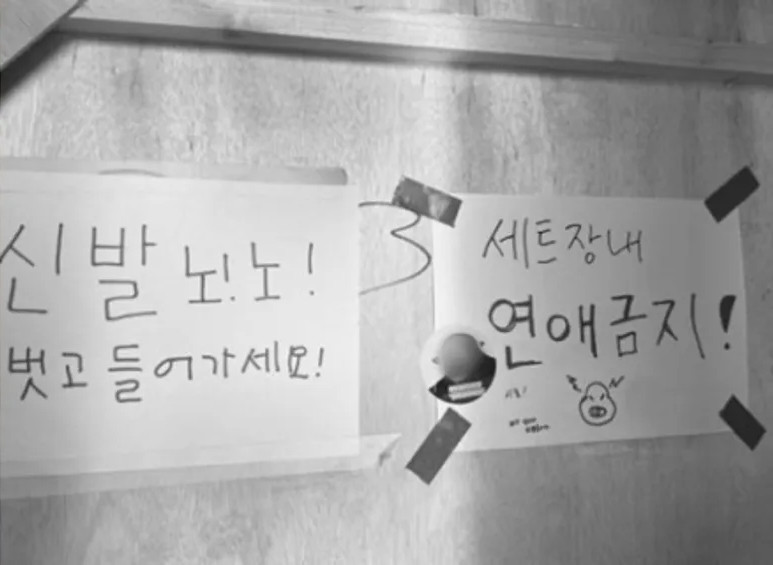 신발 노! 노!
벗고 들어가세요!
3
세트장 내
연애금지!